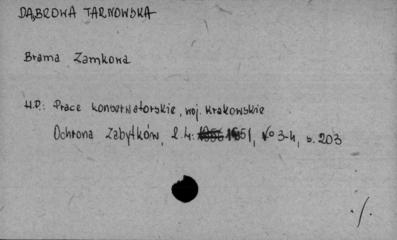 DĄBROWA TARNOWSKA
Brama Zamkowa
H.P.: Prace konserwatorskie, woj. krakowskie
Ochrona Zabytków, R. 4: 1951, No 3-4, s. 203
./.